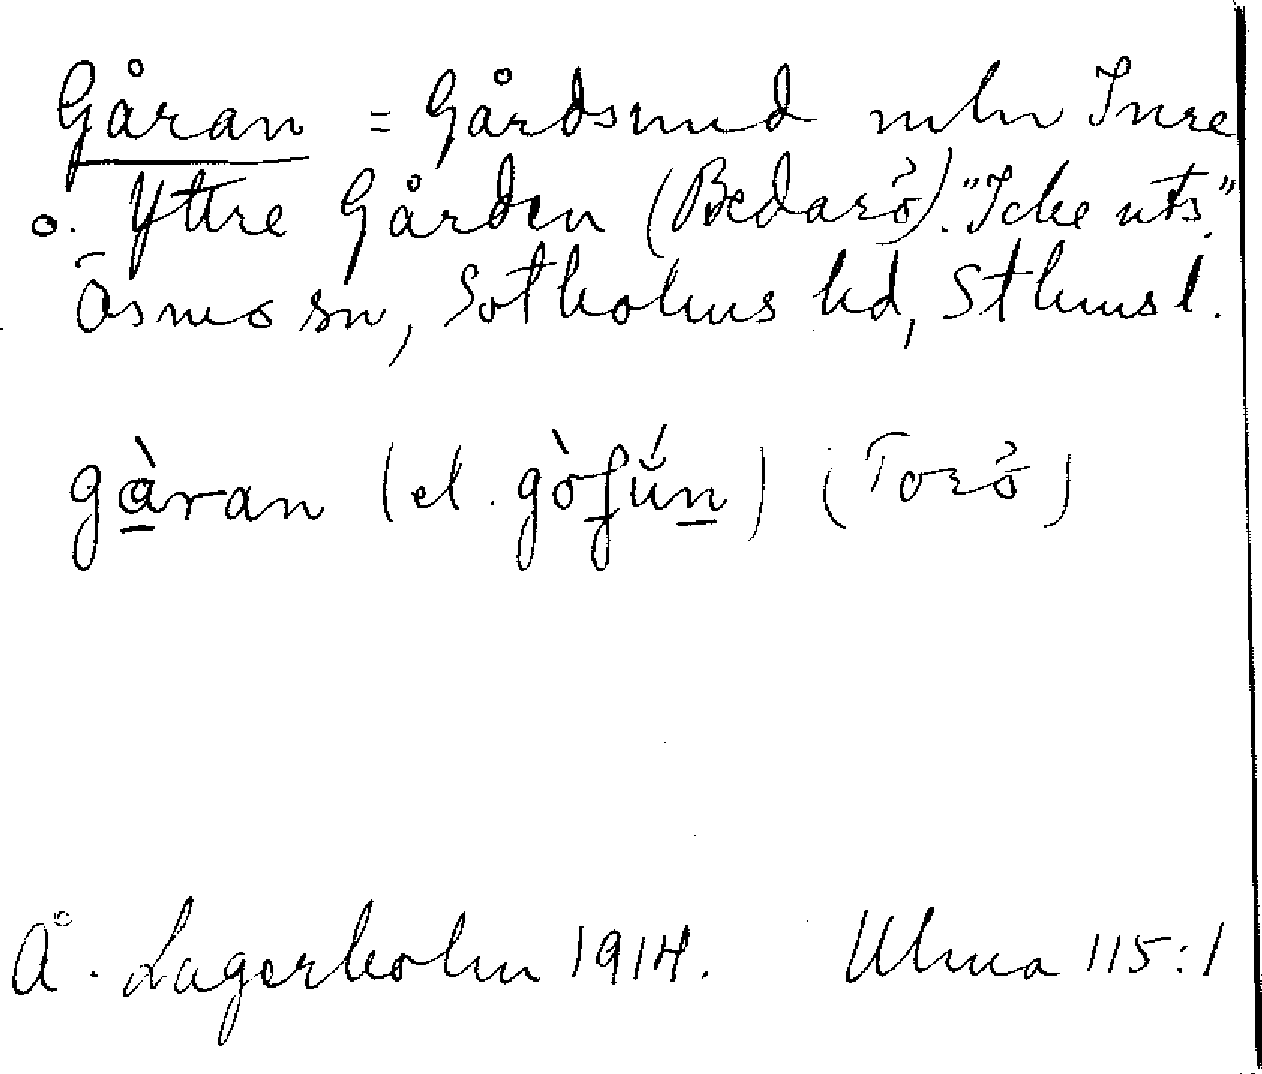 Gåran = Gårdsund mln Inre
o. Yttre Gården (Bedarö). "Icke uts."
Ösmo sn, Sotholms hd, Sthms l.
gàran (el. gòfún) (Torö)
Å. Lagerholm 1914. Ulma 115:1